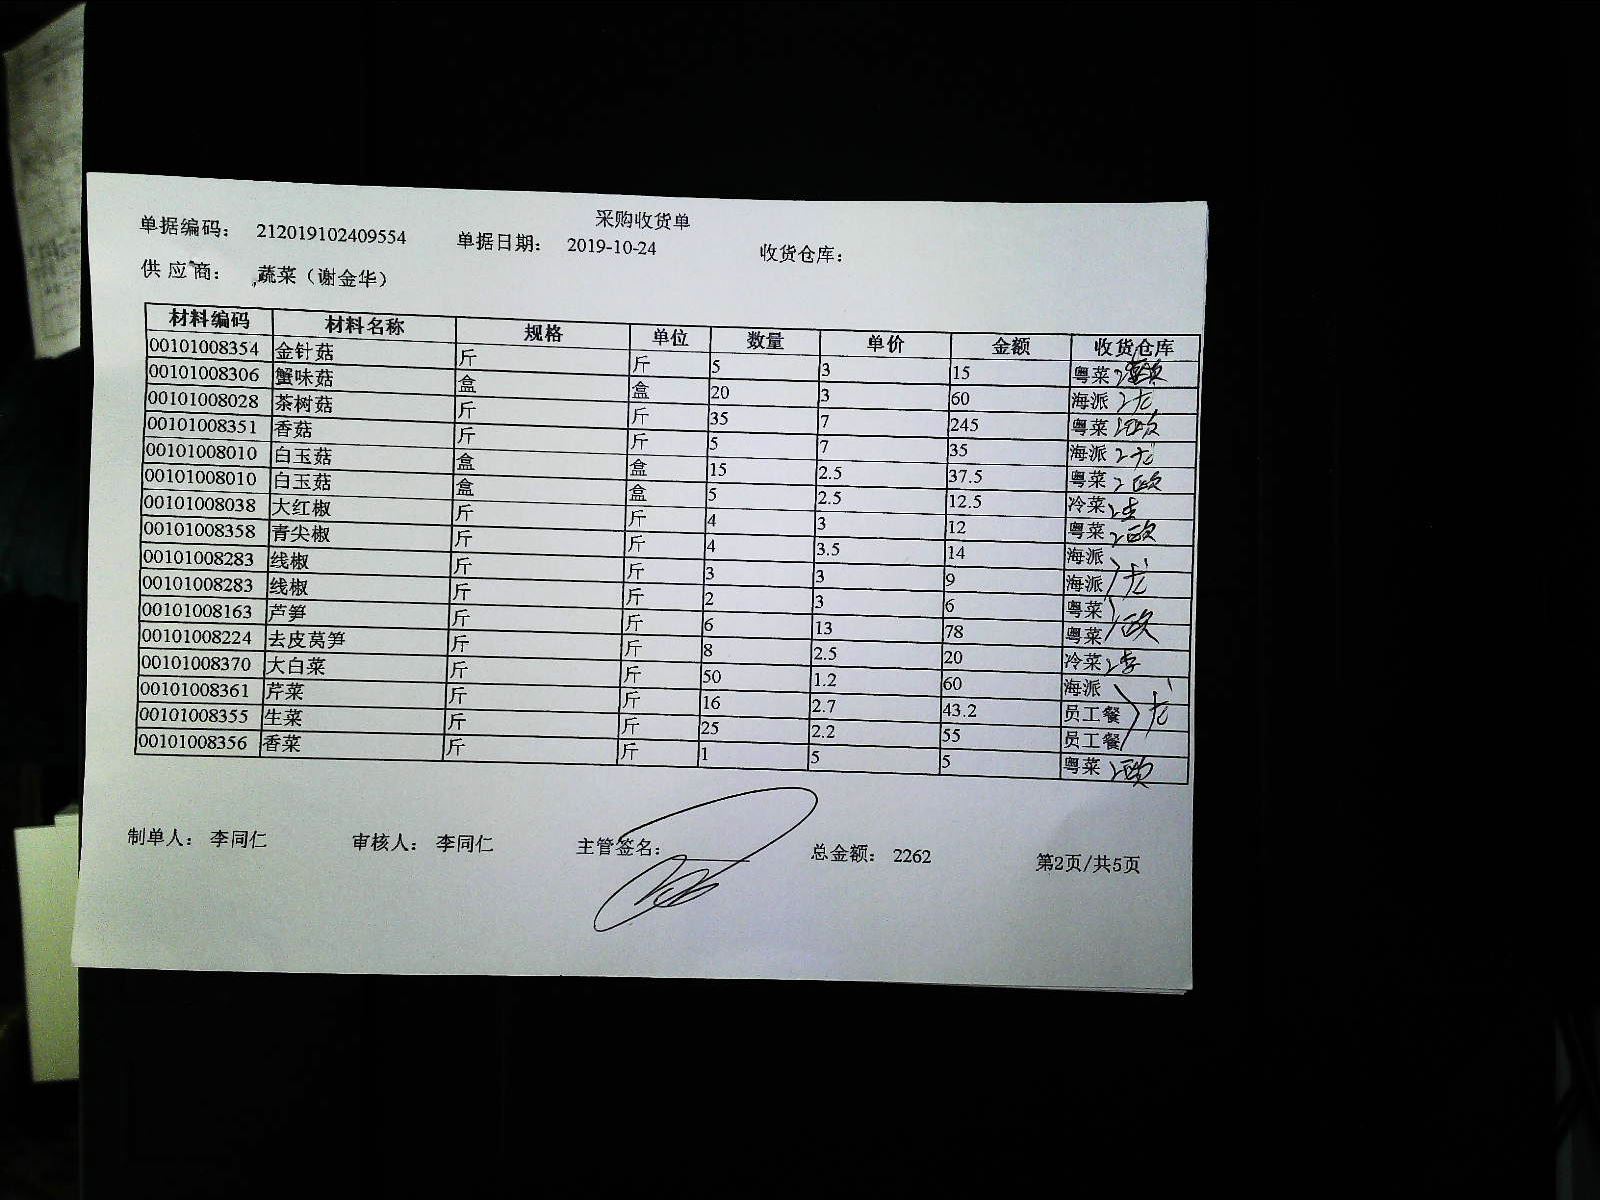 采购收货单
单据编码： 212019102409554 单据日期： 2019-10-24 收货仓库：
供 应 商： 蔬菜（谢金华）
材料编码 材料名称 规格 单位 数量 单价 金额 收货仓库
00101008354 金针菇 斤 斤 5 3 15 粤菜
00101008306 蟹味菇 盒 盒 20 3 60 海派
00101008028 茶树菇 斤 斤 35 7 245 粤菜
00101008351 香菇 斤 斤 5 7 35 海派
00101008010 白玉菇 盒 盒 15 2.5 37.5 粤菜
00101008010 白玉菇 盒 盒 5 2.5 12.5 冷菜
00101008038 大红椒 斤 斤 4 3 12 粤菜
00101008358 青尖椒 斤 斤 4 3.5 14 海派
00101008283 线椒 斤 斤 3 3 9 海派
00101008283 线椒 斤 斤 2 3 6 粤菜
00101008163 芦笋 斤 斤 6 13 78 粤菜
00101008224 去皮莴笋 斤 斤 8 2.5 20 冷菜
00101008370 大白菜 斤 斤 50 1.2 60 海派
00101008361 芹菜 斤 斤 16 2.7 43.2 员工餐
00101008355 生菜 斤 斤 25 2.2 55 员工餐
00101008356 香菜 斤 斤 1 5 5 粤菜
制单人： 李同仁 审核人： 李同仁 主管签名： 总金额： 2262 第2页/共5页